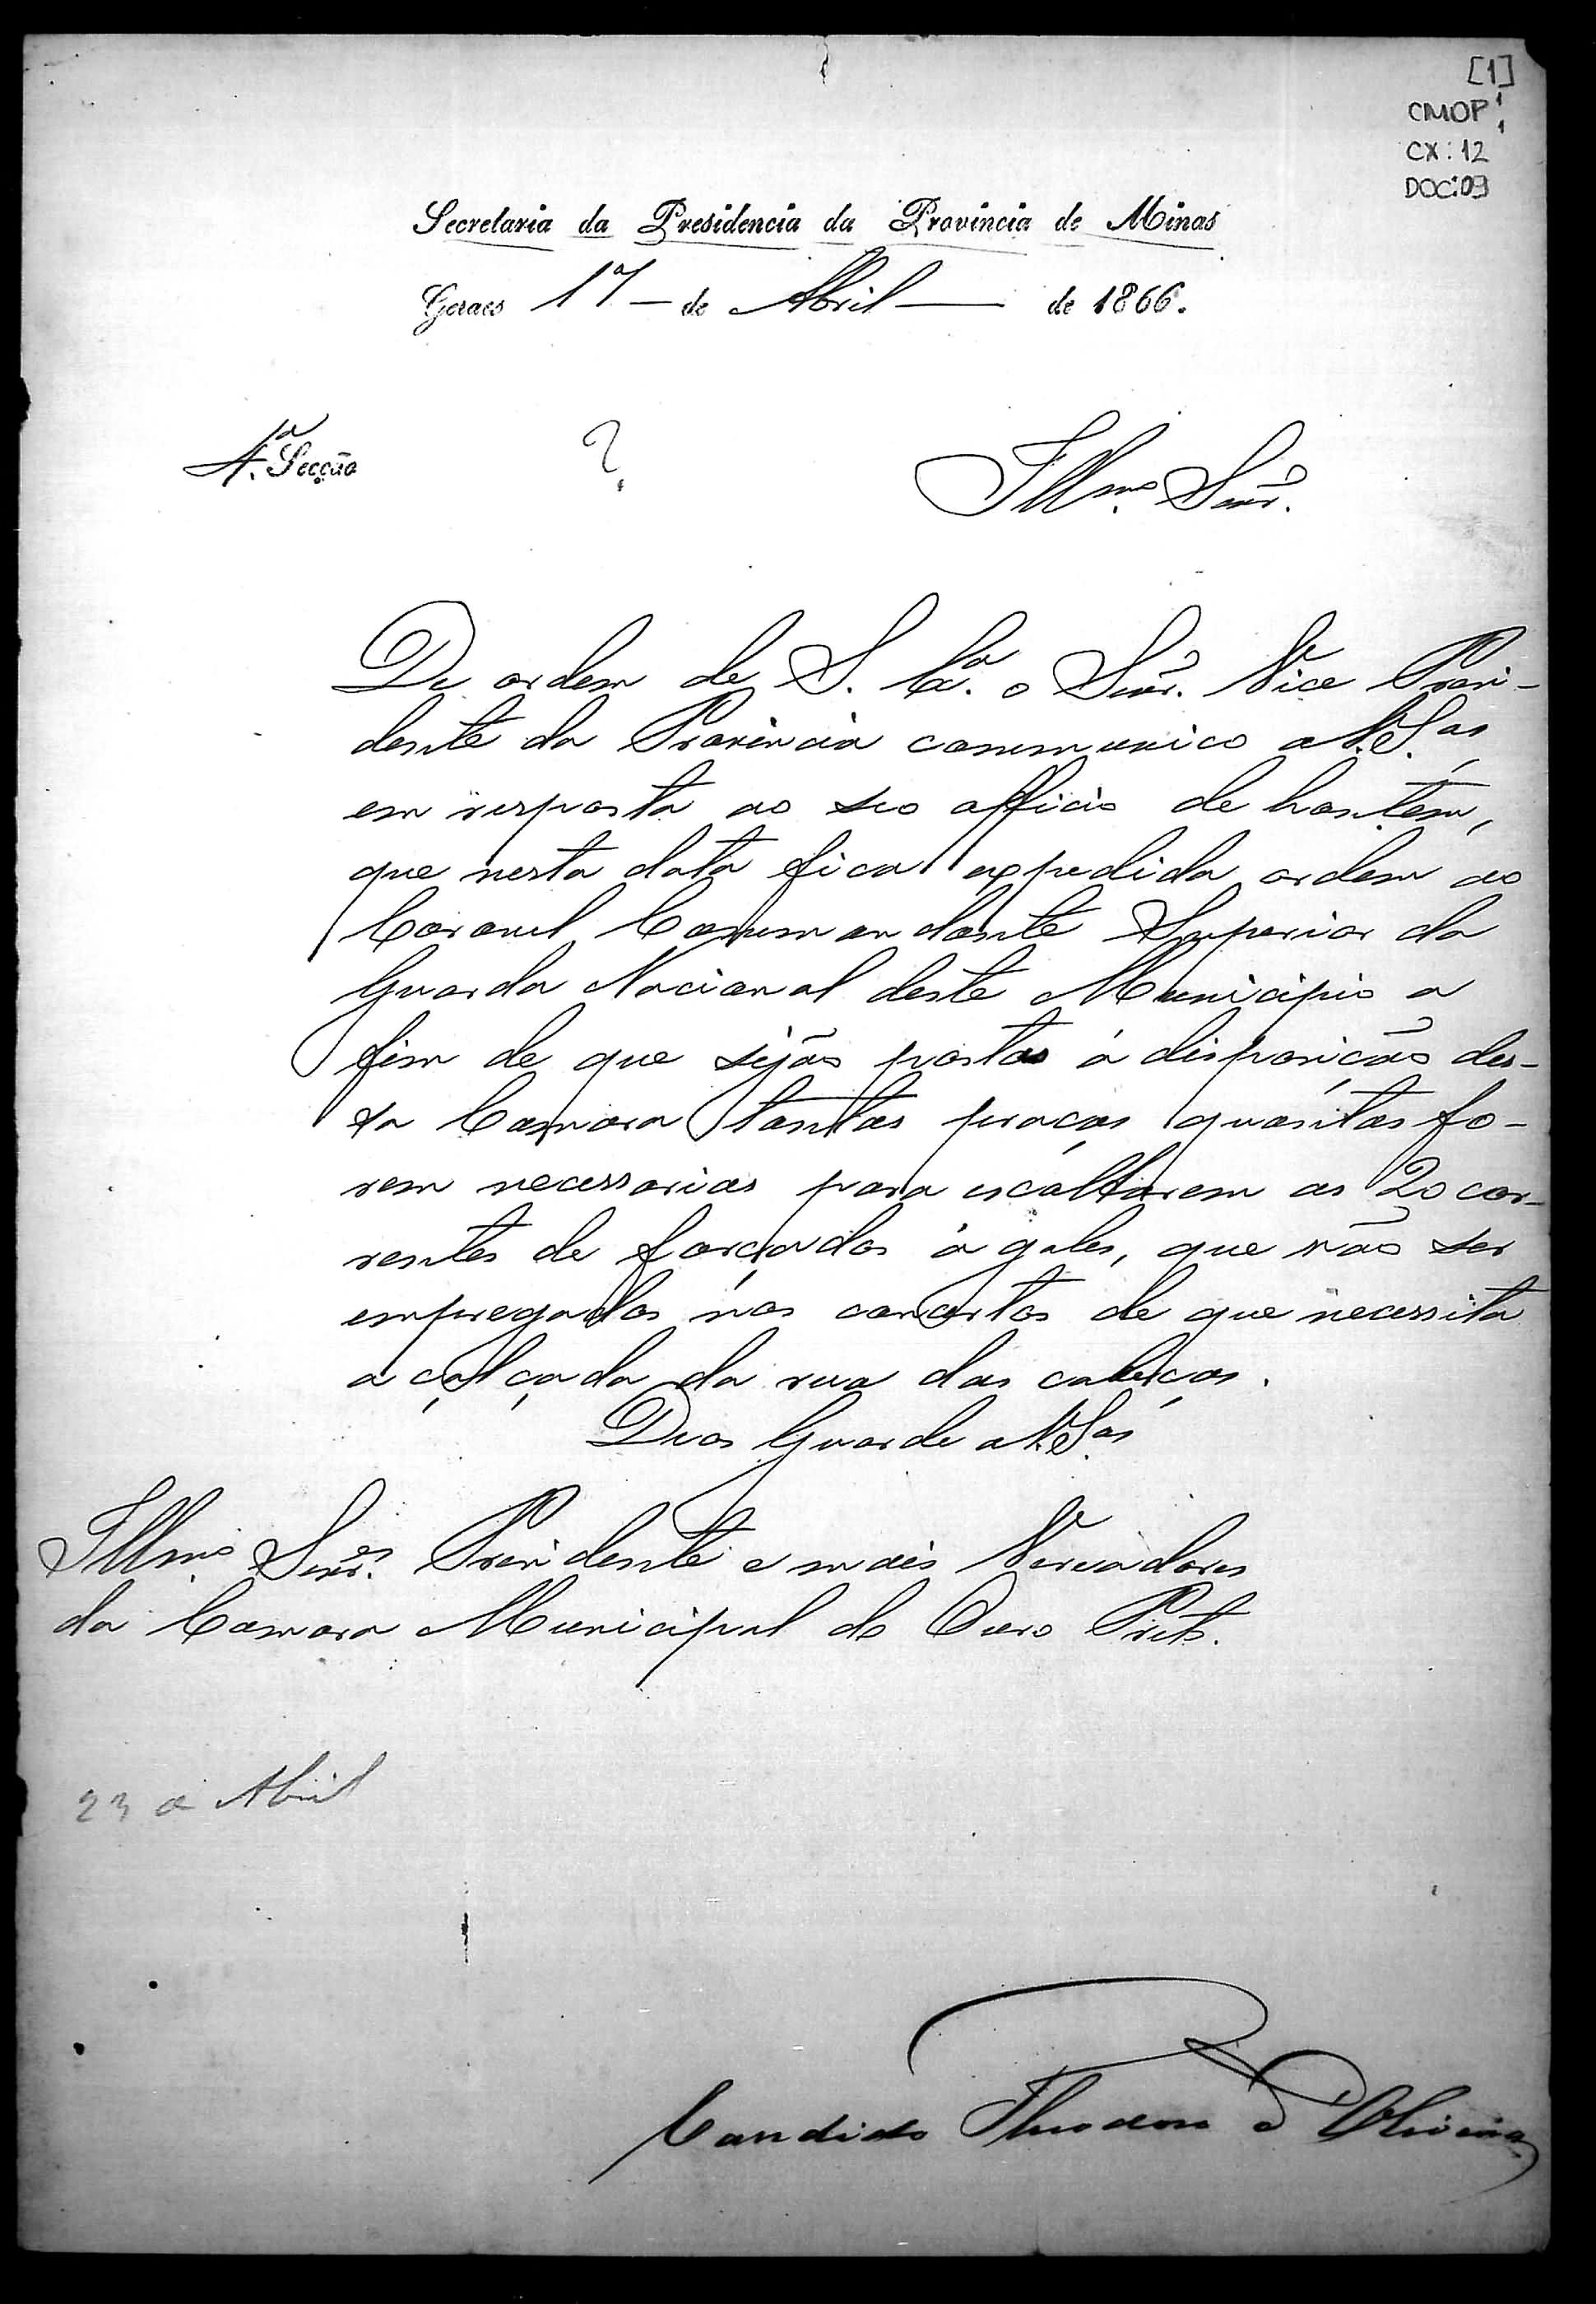 [1]
CMOP
CX: 12
DOC: 09
Secretaria da Presidencia da Provincia de Minas
Geraes 17 de Abril de 1866.
4.ª Secção
Illmo. Snr.
De ordem de S. Ex.ª o Snr. Vice Presi-
dente da Provincia communico a V.S.as
em resposta ao seo officio de hontem,
que nesta data fica expedida ordem ao
Coronel Commandante Superior da
Guarda Nacional deste Municipio a
fim de que sejão postas á disposição des-
sa Camara tantas praças quantas fo-
rem necessarias para escoltarem as 20 cor-
rentes de forçados á gales, que vão ser
empregados nos concertos de que necessita
a calçada da rua das cabeças.
Deos Guarde a V.S.as
Illmos. Snres. Presidente e mais Vereadores
da Camara Municipal do Ouro Preto.
23 de Abril
Candido Theodoro d'Oliveira